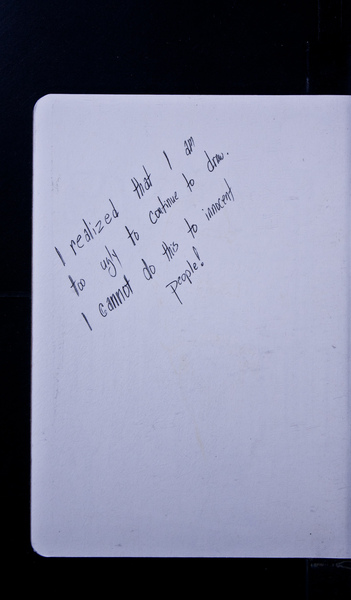 I realized that I am
too ugly to continue to draw.
I cannot do this to innocent
people!